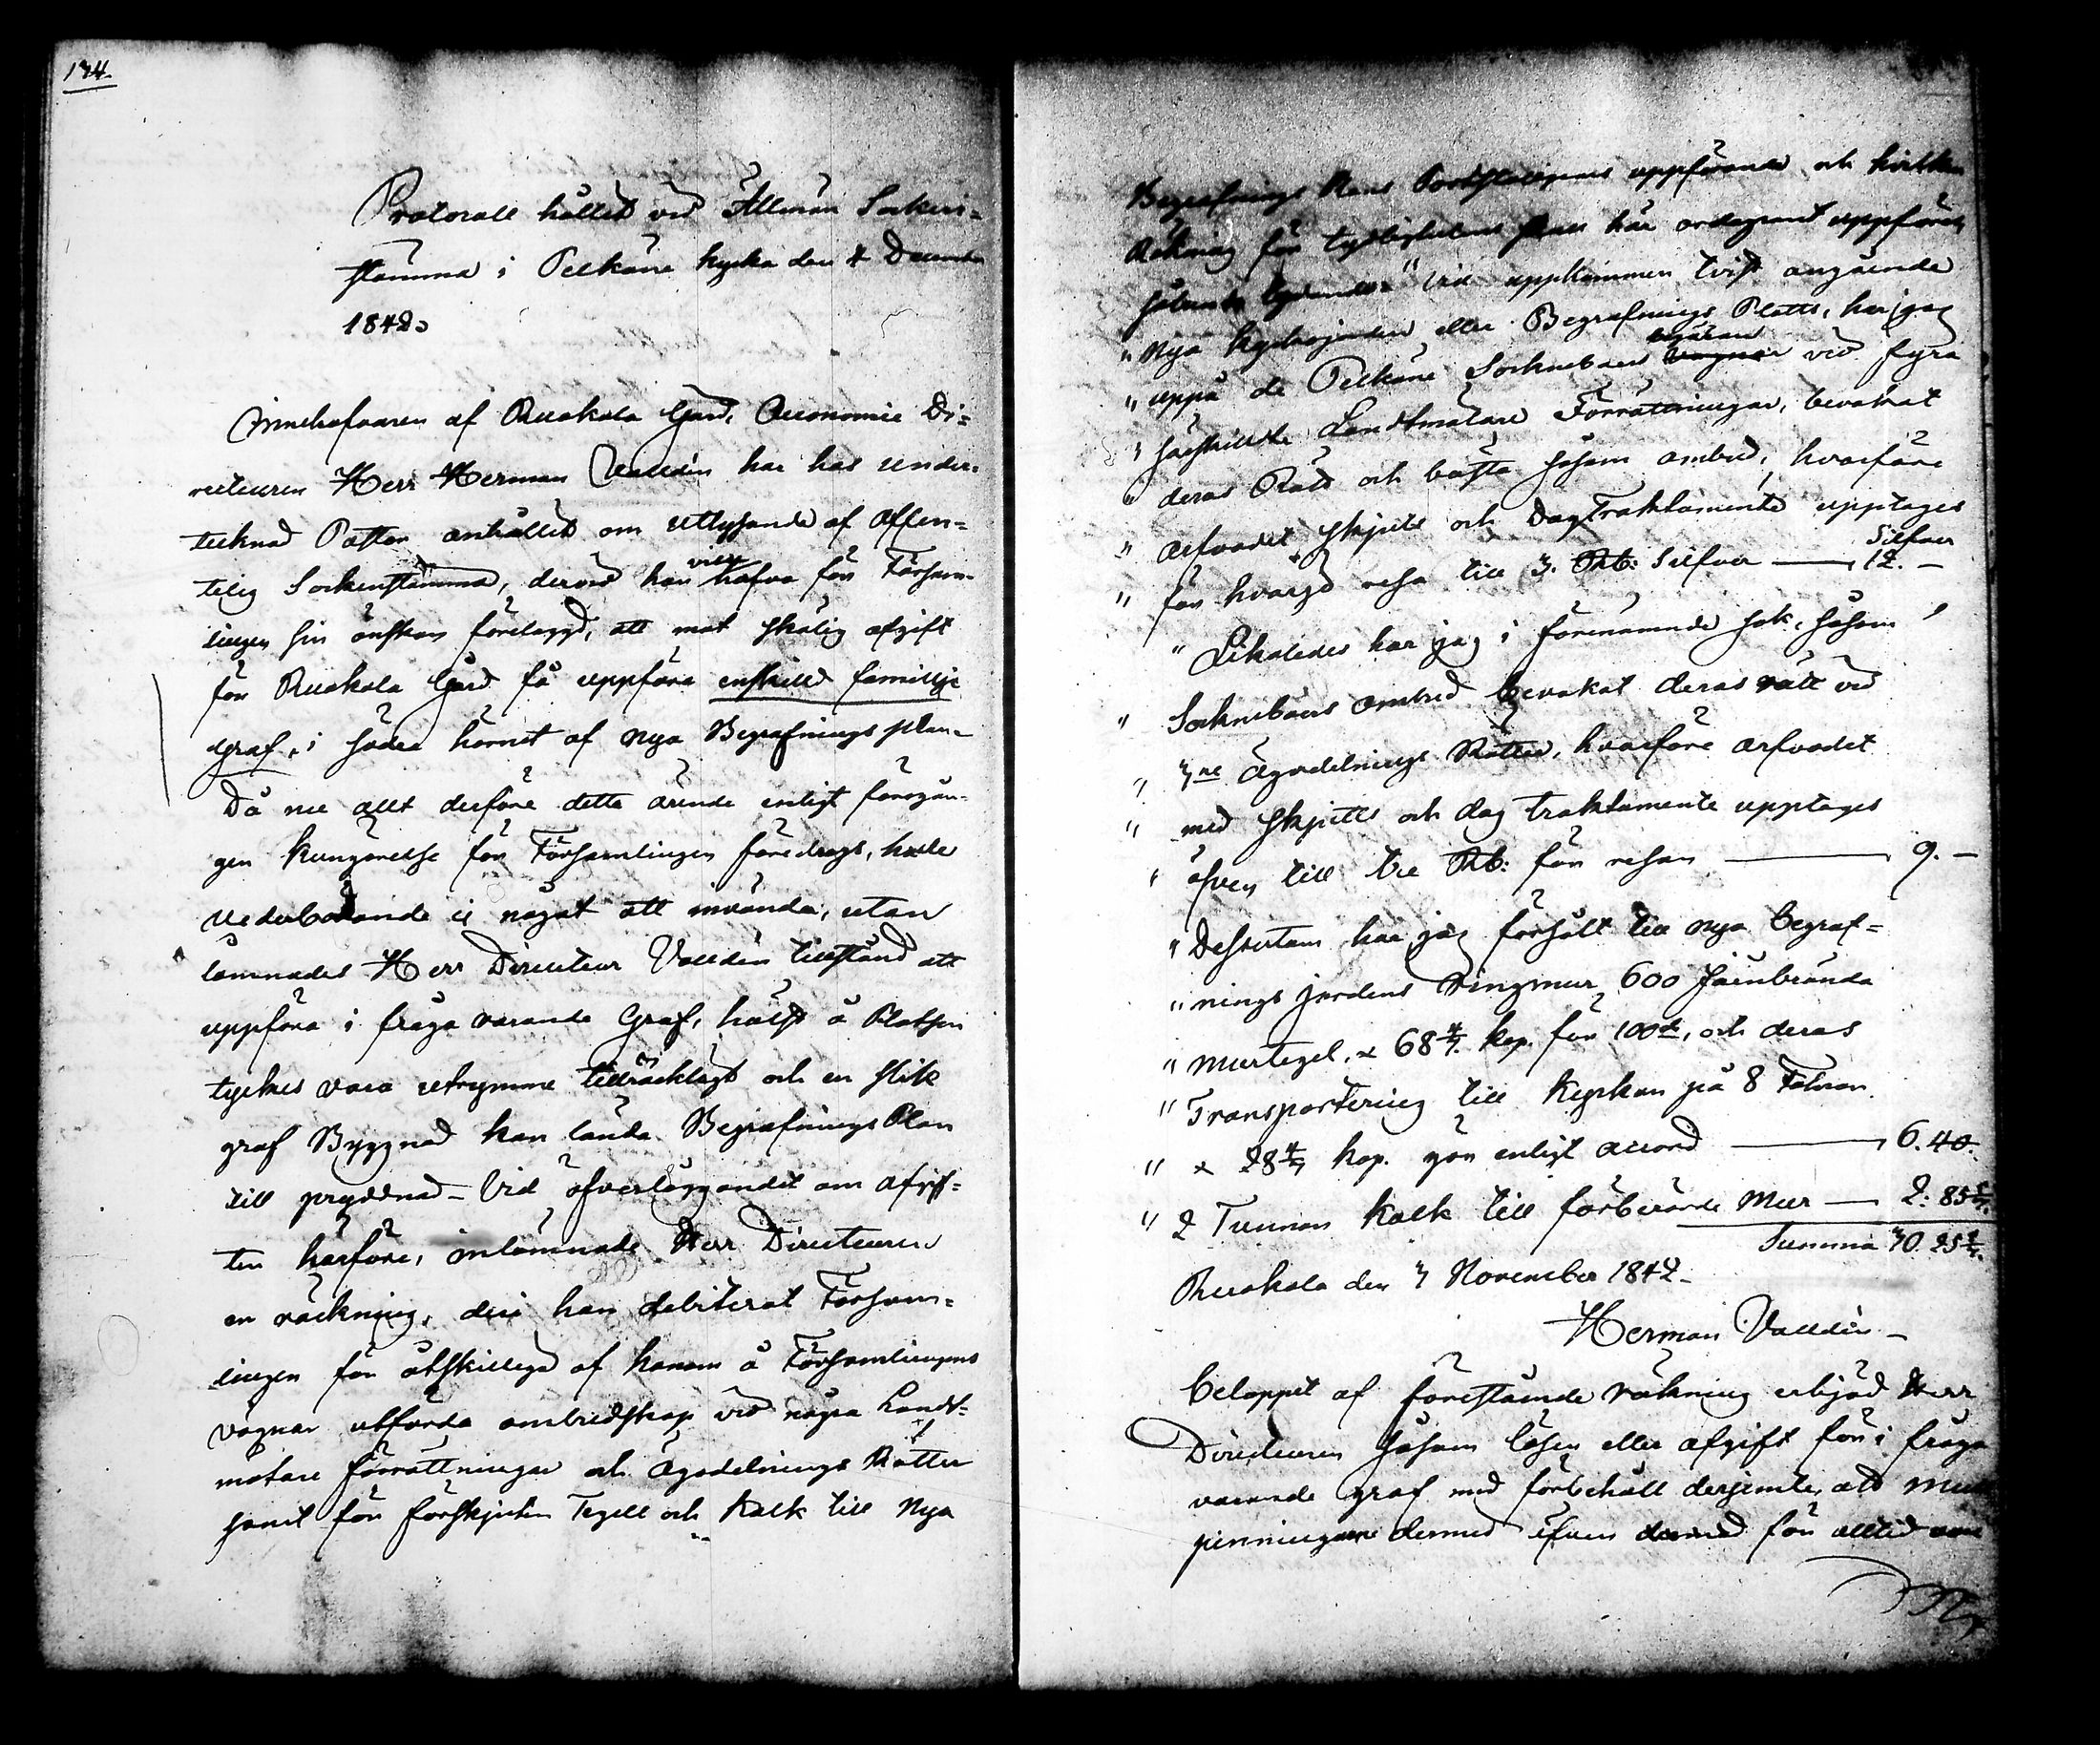 174.
Protocoll hållet vid Allmän Sockens=
stämma i Pelkäne kyrka den 4 December
1842.
Innehafvaren af Ruokola Gård, Oeconomie Di=
recteuren Herr Herman Walldén har hos under=
tecknad Pastor anhållit om utlysande af offen=
telig Sockenstämma, dervid han vill hafva för Försam=
lingen sin önskan förelaggd, att mot skälig afgift
för Ruokola Gård få uppföra enskild familje
graf, i södra hörnet af nya Begrafnings plan.
Då nu allt derföre detta ärende enligt föregån=
gen kungörelse för Församlingen föredrogs, hade
vederbörande ej något att invända, utan
lämnades Herr Directeur Walldén tillstånd att
uppföra i fråga varande Graf, hälst å Platsen
tyckes vara utrymme tillräckligt och en slik
graf Byggnad kan lända Begrafnings Plan
till prydnad – Vid öfverläggandet om afgif=
ten härföre, inlämnade Herr Directeuren
en räckning, deri han debiterat Försam=
lingen för åtskilliga af honom å Församlingens
vägnar utförda ombudskap vid några Landt=
mätare förrättningar och Ägodelnings Rätter
samt för förskjuten Tegell och Kalk till Nya
Begrafnings Plans uppförande och hvilken
Räkning för tydlighetens skull här ordagrant uppföres
sålunda lydande: "Vid uppkommen tvist angående
" Nya kyrkogården eller Begrafnings Platts, har jag
" uppå de Pelkäne Sockneboers begäran vid fyra
" särskillte Landtmätare Förrättningar, bevakat
" deras Rätt och bästa såsom ombud, hvarföre
" arfvodet skjuts och Dag Traktamente upptages
Silfver
" för hvarje resa till 3. Rub: Silfver — 12. –
" Likaledes har jag i förenämnde sak, såsom
" Sockneboers ombud bevakat deras rätt vid
" 3ne Ägodelnings Rätter, hvarföre arfvodet
" med skjutts och dag traktamente upptages
" äfven till tre Rub: för resan — 9. –
" Dessutom har jag försålt till nya begraf=
" nings jordens Ringmur 600 järnbrända
" murtegel, à 68 4/7 kop. för 100de, och deras
" Transportering till kyrkan på 8 Fälmar
" à 28 4/7 kop. gör enligt accord — 6. 40.
" 2 Tunnor Kalk till förberörde Mur — 2. 85 5/7.
Summa 30. 25 5/7.
Ruokola den 7 November 1842.
Herman Walldén –
Beloppet af förestående räkning erbjöd Herr
Directeuren såsom lösen eller afgift för i fråga
varande graf med förbehåll derjemte, att Mull
penningarne dermed äfven dermed för alltid